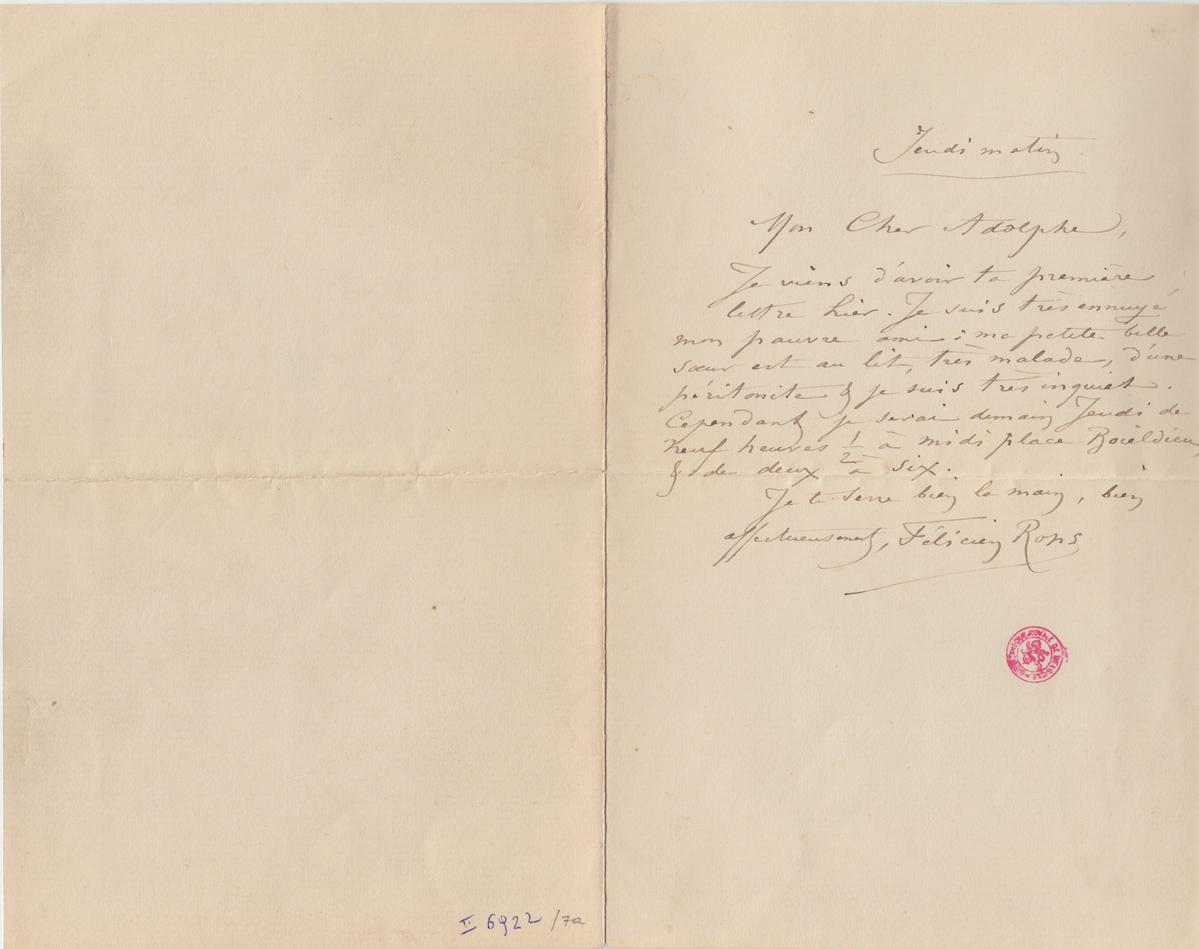 Jeudi matin
Mon Cher Adolphe,
Je viens d'avoir ta première
lettre hier. Je suis très ennuyé
mon pauvre ami : ma petite belle
sœur est au lit, très malade, d'une
péritonite & je suis très inquiet.
Cependant je serai demain Jeudi de
neuf heures 1/2 à midi place Boïeldieu,
& de deux à six.
Je te serre bien la main, bien
affectueusement, Félicien Rops
BIBLIOTHÈQUE ROYALE DE BELGIQUE
II 6922 /7a